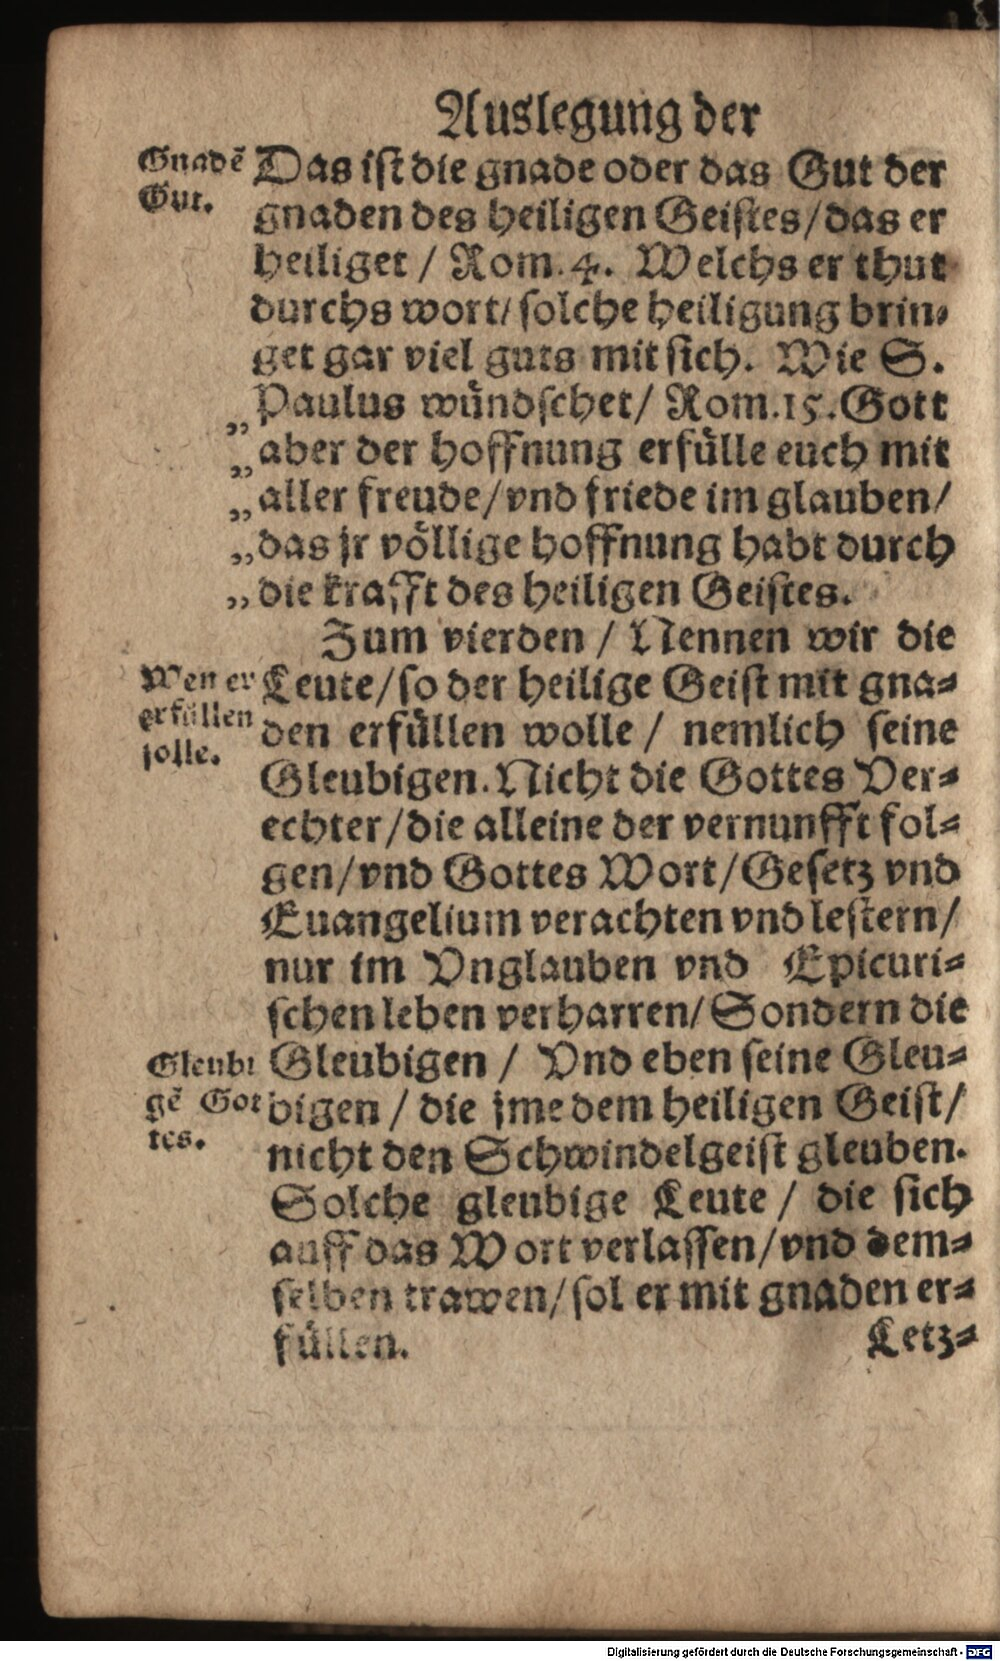 Auslegung der
Gnadẽ
Gut.
Das iſt die gnade oder das Gut der
gnaden des heiligen Geiſtes/das er
heiliget / Rom. 4. Welchs er thut
durchs wort/ ſolche heiligung brin-
get gar viel guts mit ſich. Wie S.
„Paulus wündſchet/ Rom. 15. Gott
„aber der hoffnung erfülle euch mit
„aller freude/vnd friede im glauben/
„das jr völlige hoffnung habt durch
„die krafft des heiligen Geiſtes.
Zum vierden / Nennen wir die
Wen er
erfüllen
ſolle.
Leute/ſo der heilige Geiſt mit gna-
den erfüllen wolle / nemlich ſeine
Gleubigen. Nicht die Gottes Ver-
echter/die alleine der vernunfft fol-
gen/vnd Gottes Wort/Geſetz vnd
Euangelium verachten vnd leſtern/
nur im Vnglauben vnd Epicuri-
ſchen leben verharren/ Sondern die
Gleubi
gẽ Got
tes.
Gleubigen / Vnd eben ſeine Gleu-
bigen / die jme dem heiligen Geiſt/
nicht den Schwindelgeiſt gleuben.
Solche gleubige Leute / die ſich
auff das Wort verlaſſen/vnd dem-
ſelben trawen/ſol er mit gnaden er-
füllen.
Letz-
Digitalisierung gefördert durch die Deutsche Forschungsgemeinschaft - DFG